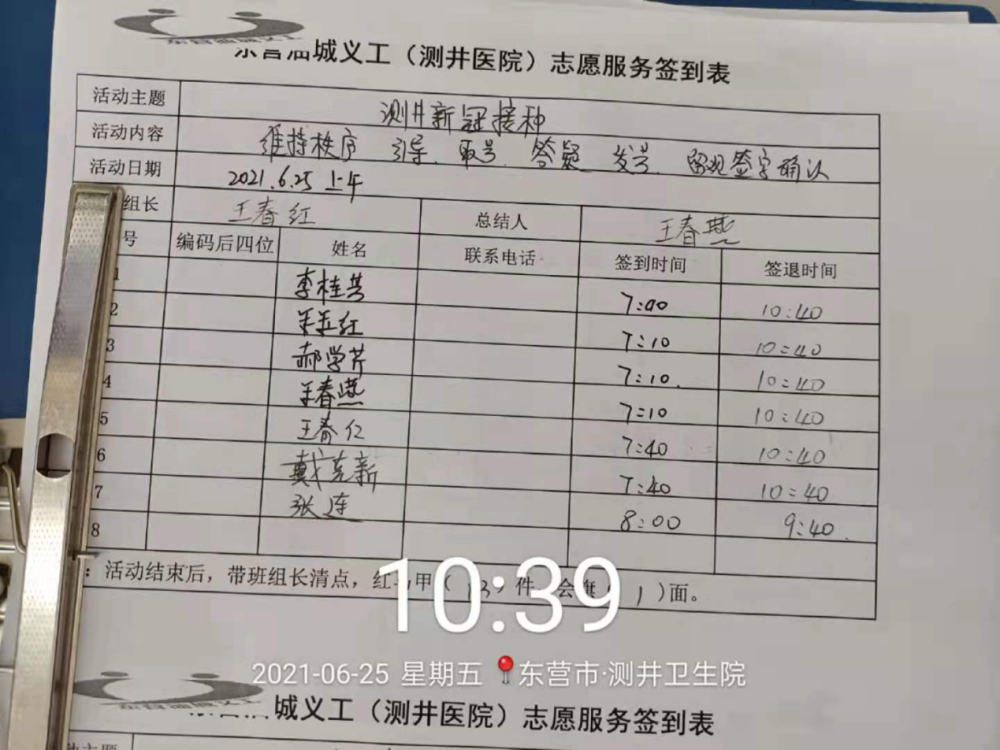 东营油城义工
东营油城义工（测井医院）志愿服务签到表
活动主题 测井新冠接种
活动内容 维持秩序 引导、取号、答疑、发号、留观签字确认
活动日期 2021.6.25 上午
组长 王春红 总结人 王春燕
号 编码后四位 姓名 联系电话 签到时间 签退时间
1 李桂芸 7:00 10:40
2 王玉红 7:10 10:40
3 郝学芹 7:10. 10:40
4 王春燕 7:10 10:40
5 王春红 7:40 10:40
6 戴克新 7:40 10:40
7 张连 8:00 9:40.
8
：活动结束后，带班组长清点，红马甲（ 13）件，会旗（ 1 ）面。
10:39
2021-06-25 星期五 东营市·测井卫生院
东营油城义工
城义工（测井医院）志愿服务签到表
动主题